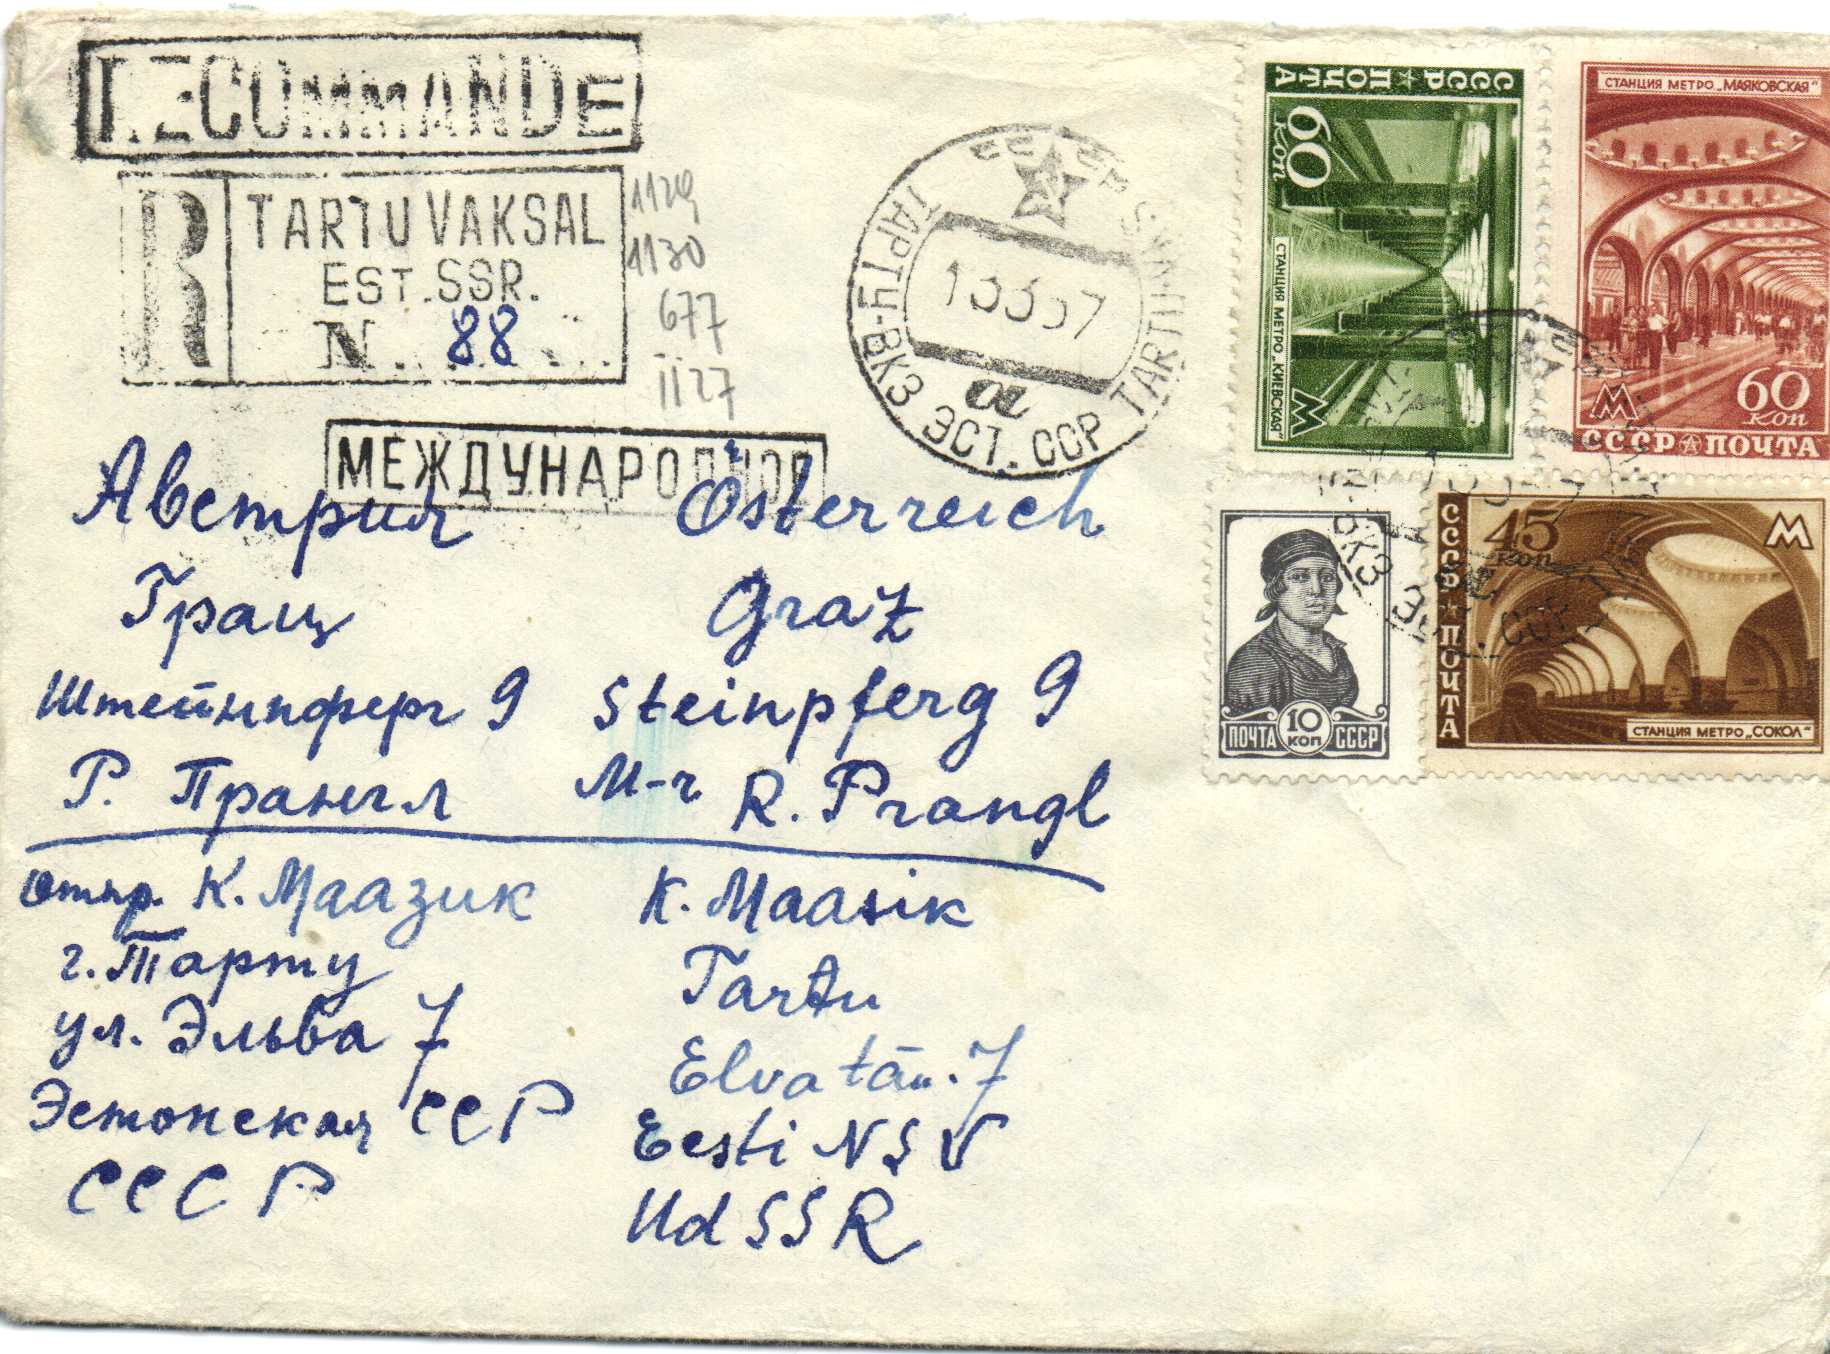 RECOMMANDE
R TARTU VAKSAL
EST. SSR.
N. 88
1129
1130
677
1127
МЕЖДУНАРОДНОЕ
ТАРТУ-ВКЗ ЭСТ. ССР TARTU
СССР ПОЧТА
60 коп
СТАНЦИЯ МЕТРО „КИЕВСКАЯ"
М
СТАНЦИЯ МЕТРО „МАЯКОВСКАЯ"
М 60 коп
СССР ПОЧТА
10 КОП
ПОЧТА СССР
СССР ПОЧТА
45 коп
М
СТАНЦИЯ МЕТРО „СОКОЛ"
Австрия Österreich
Грац Graz
Штейнпферг 9 Steinpferg 9
Р. Прангл M-r R. Prangl
отпр. К. Маазик K. Maasik
г. Тарту Tartu
ул. Эльва 7 Elva tän. 7
Эстонская ССР Eesti NSV
СССР UdSSR